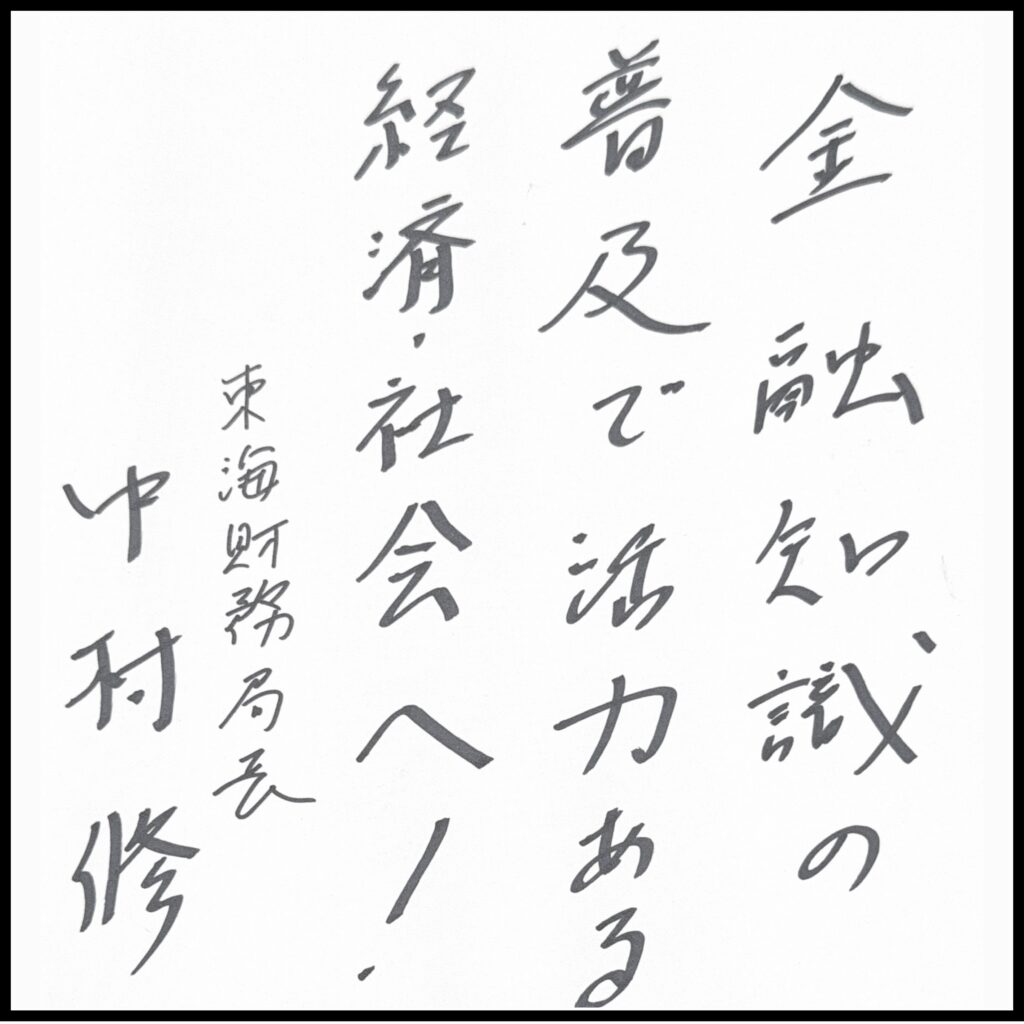 金融知識の
普及で活力ある
経済・社会へ!
東海財務局長
中村修